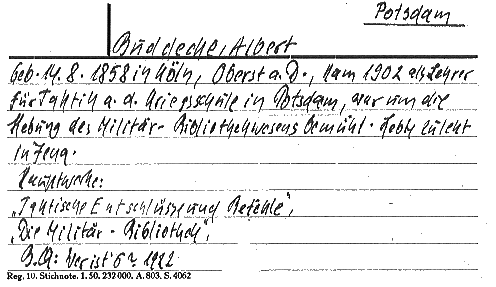 Potsdam
Buddecke, Albert
Geb. 14. 8. 1858 in Köln, Oberst a. D., kam 1902 als Lehrer
für Taktik a. d. Kriegsschule in Potsdam, war um die
Hebung des Militär-Bibliothekwesens bemüht. Lebte zuletzt
in Jena.
Hauptwerke:
„Taktische Entschlüsse und Befehle",
„Die Militär-Bibliothek",
B.Q: Wer ist's 1922
Reg. 10. Stichnote. I. 50. 232 000. A. 803. S. 4062